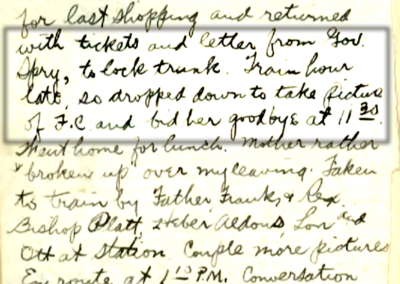 for last shopping and returned
with tickets and letter from Gov.
Spry, to lock trunk. Train hour
late, so dropped down to take picture
of F.C. and bid her goodbye at 11 30.
Went home for lunch. Mother rather
"broken up" over my leaving. Taken
to train by Father, Frank, & Rex.
Bishop Platt, Heber Aldous, Lon and
Ott at station. Couple more pictures
En route at 1 10 P.M. Conversation